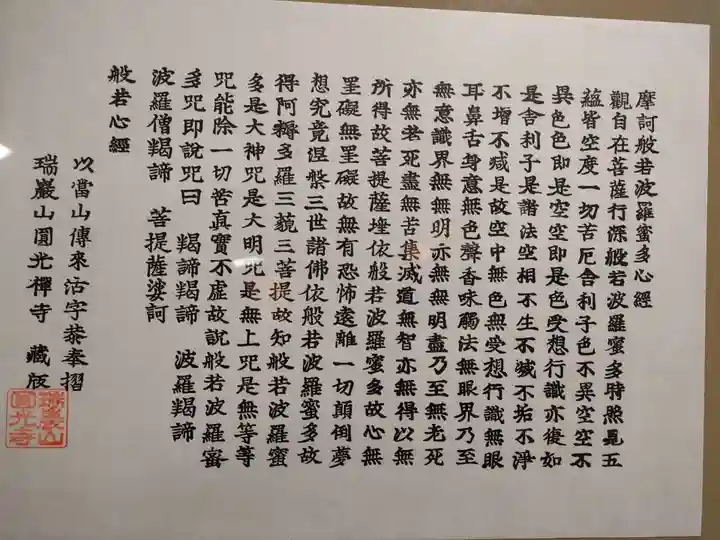 摩訶般若波羅蜜多心經
觀自在菩薩行深般若波羅蜜多時照見五
蘊皆空度一切苦厄舍利子色不異空空不
異色色即是空空即是色受想行識亦復如
是舍利子是諸法空相不生不滅不垢不淨
不增不減是故空中無色無受想行識無眼
耳鼻舌身意無色聲香味觸法無眼界乃至
無意識界無無明亦無無明盡乃至無老死
亦無老死盡無苦集滅道無智亦無得以無
所得故菩提薩埵依般若波羅蜜多故心無
罣礙無罣礙故無有恐怖遠離一切顛倒夢
想究竟涅槃三世諸佛依般若波羅蜜多故
得阿耨多羅三藐三菩提故知般若波羅蜜
多是大神咒是大明咒是無上咒是無等等
咒能除一切苦真實不虛故說般若波羅蜜
多咒即說咒曰 羯諦羯諦 波羅羯諦
波羅僧羯諦 菩提薩婆訶
般若心經
以當山傳來活字恭奉摺
瑞巖山圓光禪寺 藏版
瑞巖山
圓光寺